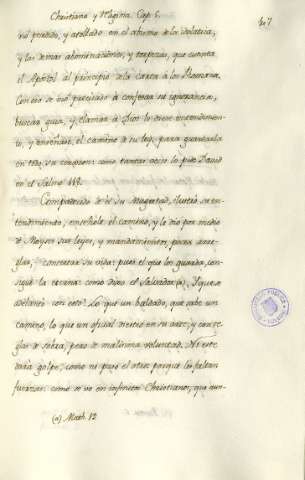 Christiano y Magina Cap. 5.
47
vió perdido, y atollado en el abismo de la idolatria,
y las demas abominaciones, y torpezas, que cuenta
el Apóstol al principio de la carta à los Romanos.
Con eso se vió precisado à confesar su ignorancia,
buscar guia, y clamar à Dios le diese entendimien-
to, y enseñase el camino à su ley, para guardarla
en todo su corazon: como tantas veces lo pide David
en el Salmo 118.
Compadecido de él su Magestad, ilustró su en-
tendimiento, enseñole el camino, y le dio por medio
de Moyses sus leyes, y mandamientos, para arre-
glar, concertar su vida: pues el que los guarda, con-
sigue la eterna como dijo el Salvador (a). Y que se
adelantó con esto? Lo que un baldado, que sabe un
camino, lo que un oficial diestro en su arte, y con re-
glas de sobra, pero de malisima voluntad. Ni este
dará golpe, como ni paso el otro: porque les faltan
fuerzas: como se ve en infinitos Christianos, que aun-
(a) Math. 19